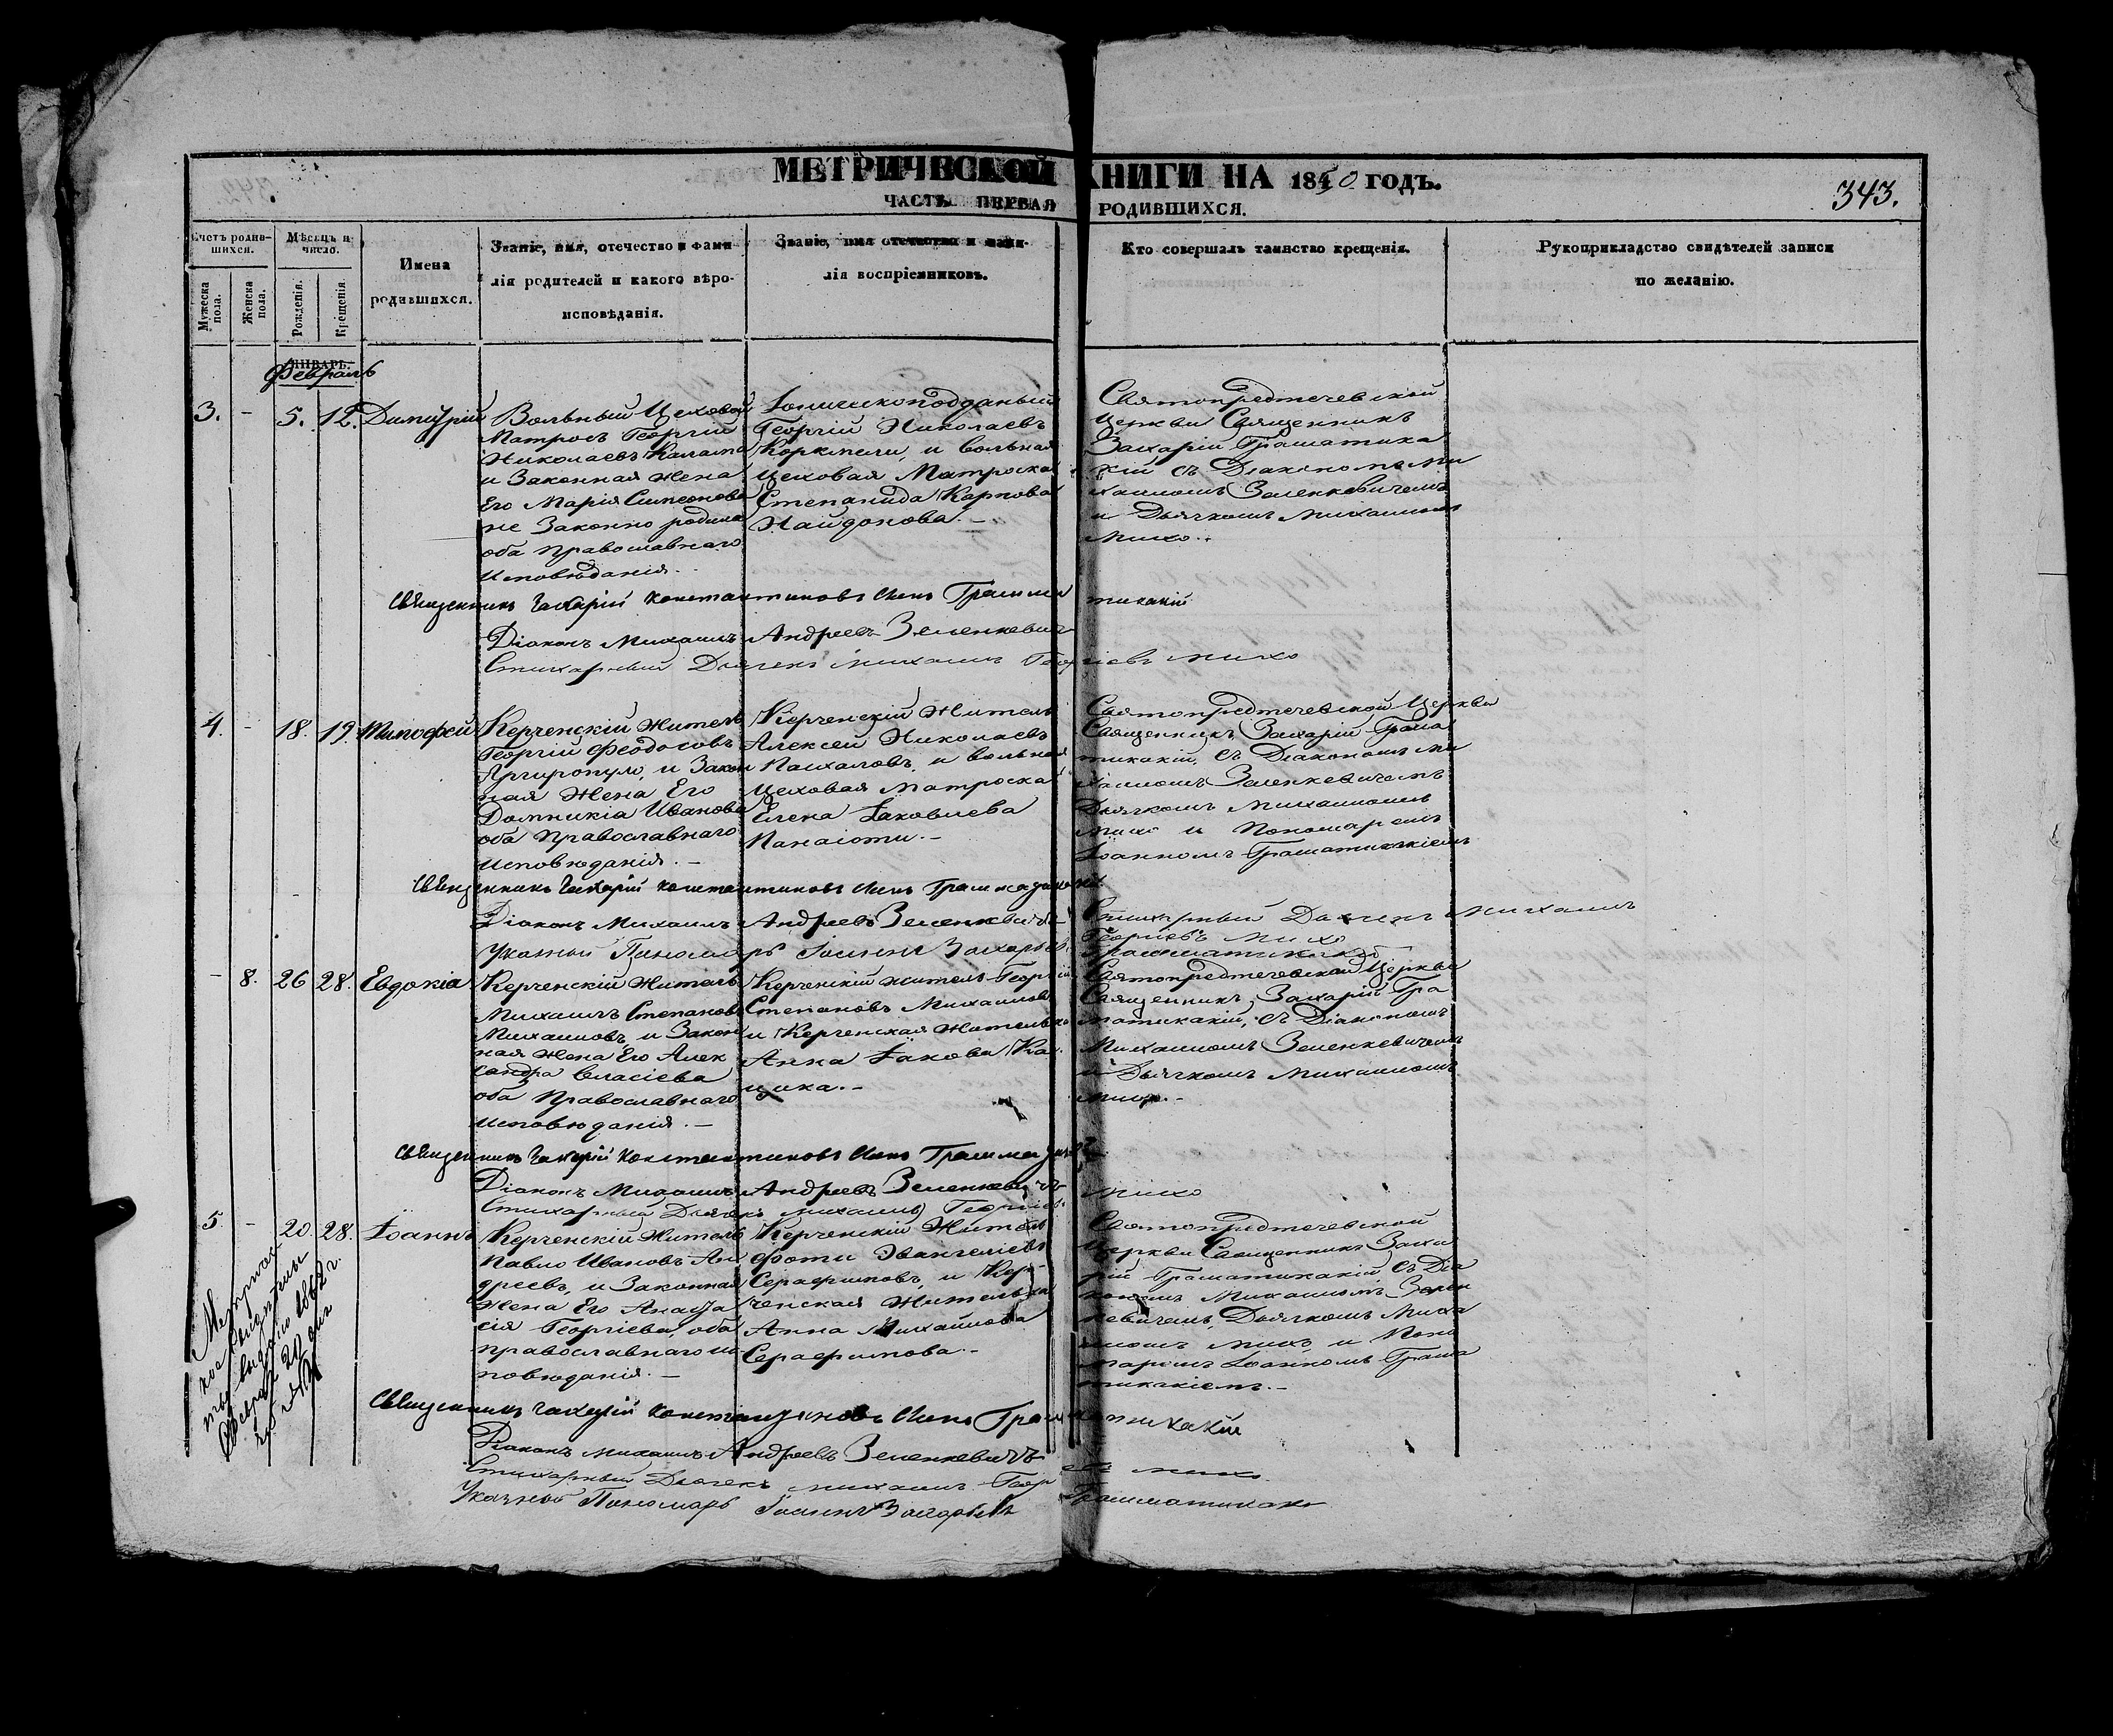 МЕТРИЧЕСКОЙ КНИГИ НА 1850 ГОДЪ.
343.
ЧАСТЬ ПЕРВАЯ РОДИВШИХСЯ.
Счетъ родив-
шихся.
Мужеска
пола.
Женска
пола.
Мѣсяцъ и
число.
Рожденія.
Крещенія.
Имена
родившихся.
Званіе, имя, отечество и фами-
лія родителей и какого вѣро-
исповѣданія.
Званіе, имя отечество и фами-
лія воспріемниковъ.
Кто совершалъ таинство крещенія.
Рукоприкладство свидѣтелей записи
по желанію.
ЯНВАРЬ.
Февраль
3. - 5. 12. Димитрій
Вольный Цеховой
Матросъ Георгій
Николаевъ
и Законная жена
Его Марія Симеонова
не Законно родила
оба православнаго
исповѣданія.
Іоническоподданый
Георгій Николаевъ
и вольная
Цеховая Матроска
Степанида Карпова
Найдонова. -
Святопредтечевской
Церкви Священникъ
Захарій Граматика
кій съ Діакономъ Ми
хаиломъ Зеленкевичемъ
и Дьячкомъ Михаиломъ
Михо.
Священникъ Захарій Константиновъ сынъ Грамматикакій
Діаконъ Михаилъ Андреевъ Зеленкевичъ
Стихарный Дьячекъ Михаилъ Георгіевъ Михо
4. - 18. 19. Тимофей
Керченскій житель
Георгій Феодосовъ
Аргиропуло, и Закон
ная жена Его
Домникіа Иванова
оба Православнаго
исповѣданія. -
Керченскій житель
Алексей Николаевъ
Пасхаловъ, и вольная
цеховая матроска
Елена Іаковлева
Панаіоти. -
Святопредтечевской Церкви
Священникъ Захарій Грама
тикакій, съ Діакономъ Ми
хаиломъ Зеленкевичемъ
Дьячкомъ Михаиломъ
Михо и Пономаремъ
Іоанномъ Граматикакіемъ
Священникъ Захарій Константиновъ сынъ Грамматикакій
Діаконъ Михаилъ Андреевъ Зеленкевичъ
Стихарный Дьячекъ Михаилъ
Георгіевъ Михо
Указной Пономарь Іоаннъ Захарьевъ Грамматикакій
- 8. 26 28. Евдокіа
Керченскій житель
Михаилъ Степановъ
Михаиловъ, и Закон
ная жена Его Алек
сандра Власіева
оба Православнаго
исповѣданія. -
Керченскій житель Георгій
Степановъ Михаиловъ
и Керченская жителька
Анна Іакова Ка
цика. -
Святопредтечевской Церкви
Священникъ, Захарій Гра
матикакій, съ Діакономъ
Михаиломъ Зеленкевичемъ
и Дьячкомъ Михаиломъ
Михо. -
Священникъ Захарій Константиновъ сынъ Грамматикакій
Діаконъ Михаилъ Андреевъ Зеленкевичъ
Стихарный Дьячекъ Михаилъ Георгіевъ Михо
5. - 20. 28. Іоаннъ
Керченскій житель
Павло Ивановъ Ан
дреевъ, и Законная
жена Его Анаста
сія Георгіева, оба
православнаго ис
повѣданія. -
Керченскій житель
Фоти Эвангеліевъ
Серафимовъ, и Кер-
ченская жителька
Анна Михайлова
Серафимова. -
Святопредтечевской
Церкви Священникъ Заха
рій Граматикакій съ Діа
кономъ Михаиломъ Зелен
кевичемъ, Дьячкомъ Миха
иломъ Михо, и Поно
маремъ Іоанномъ Грама
тикакіемъ. -
Метричес
кое свидѣтель
ство выдано 1862 г.
Февраля 21 дня
Священникъ Захарій Константиновъ сынъ Грамматикакій
Діаконъ Михаилъ Андреевъ Зеленкевичъ
Стихарный Дьячекъ Михаилъ Георгіевъ Михо
Указной Пономарь Іоаннъ Захарьевъ Грамматикаки